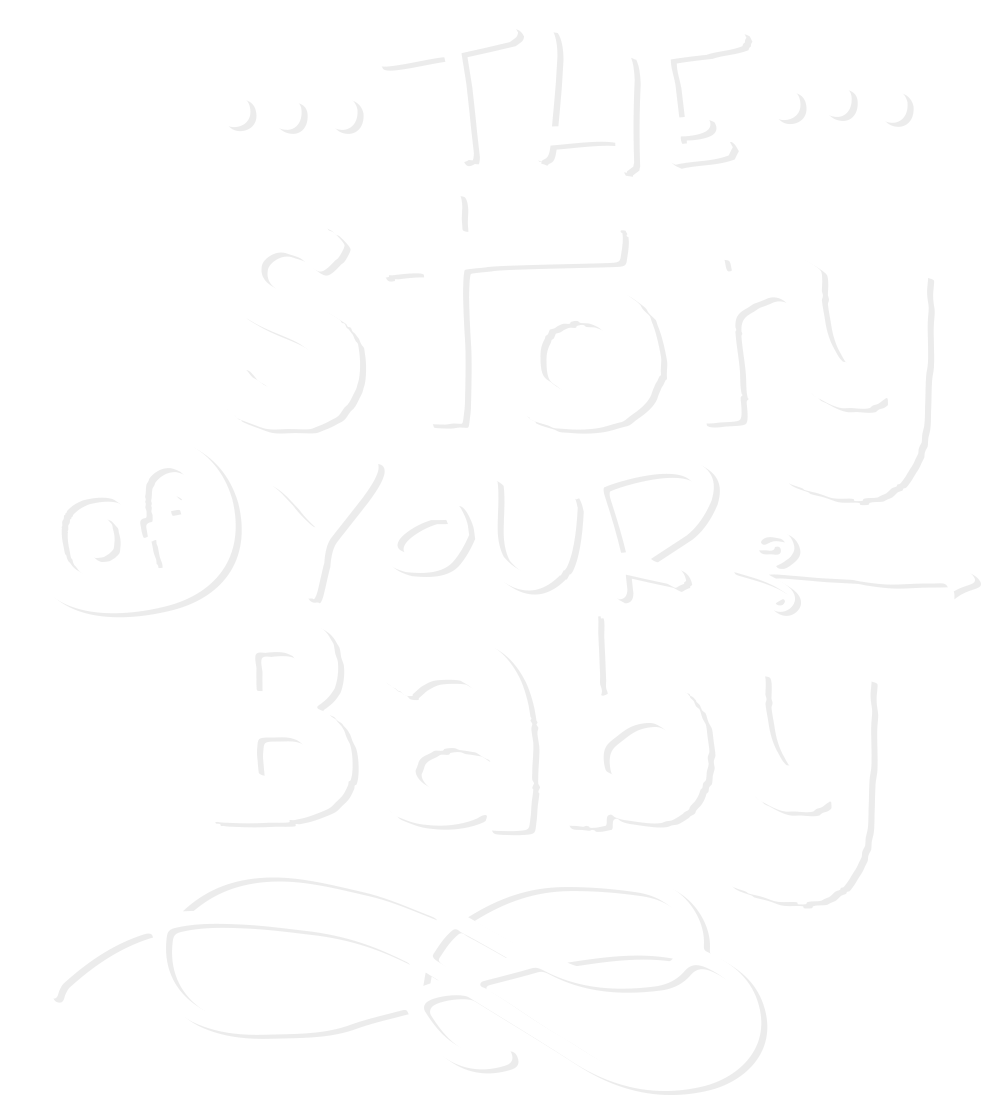 ...THE...
Story
of YOUR
Baby